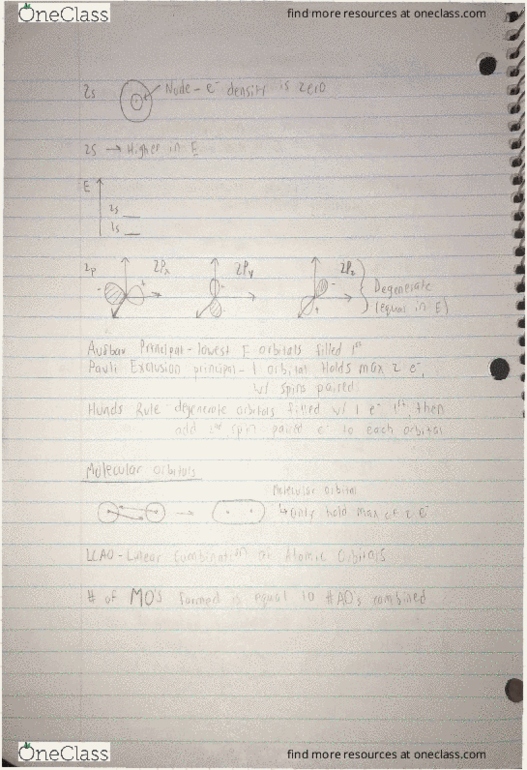 OneClass
find more resources at oneclass.com
2s Node - e⁻ density is zero
2s → Higher in E
E
2s
1s
2p 2Px 2Py 2Pz Degenerate
(equal in E)
Aufbau Principal - lowest E orbitals filled 1st
Pauli Exclusion principal - 1 orbital Holds max 2 e⁻,
w/ spins paired
Hunds Rule degenerate orbitals filled w/ 1 e⁻ 1st, then
add spin paired e⁻ to each orbital
Molecular orbitals
Molecular orbital
→ ↳ only hold max of 2 e⁻
LCAO - Linear Combination of Atomic Orbitals
# of MO's formed is equal to #AO's combined
OneClass
find more resources at oneclass.com